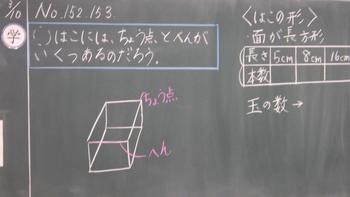 3/10 No.152.153.
学
(:)はこには、ちょう点とへんが
いくつあるのだろう。
ちょう点
へん
〈はこの形〉
・面が長方形
長さ 5cm 8cm 16cm
本数
玉の数→